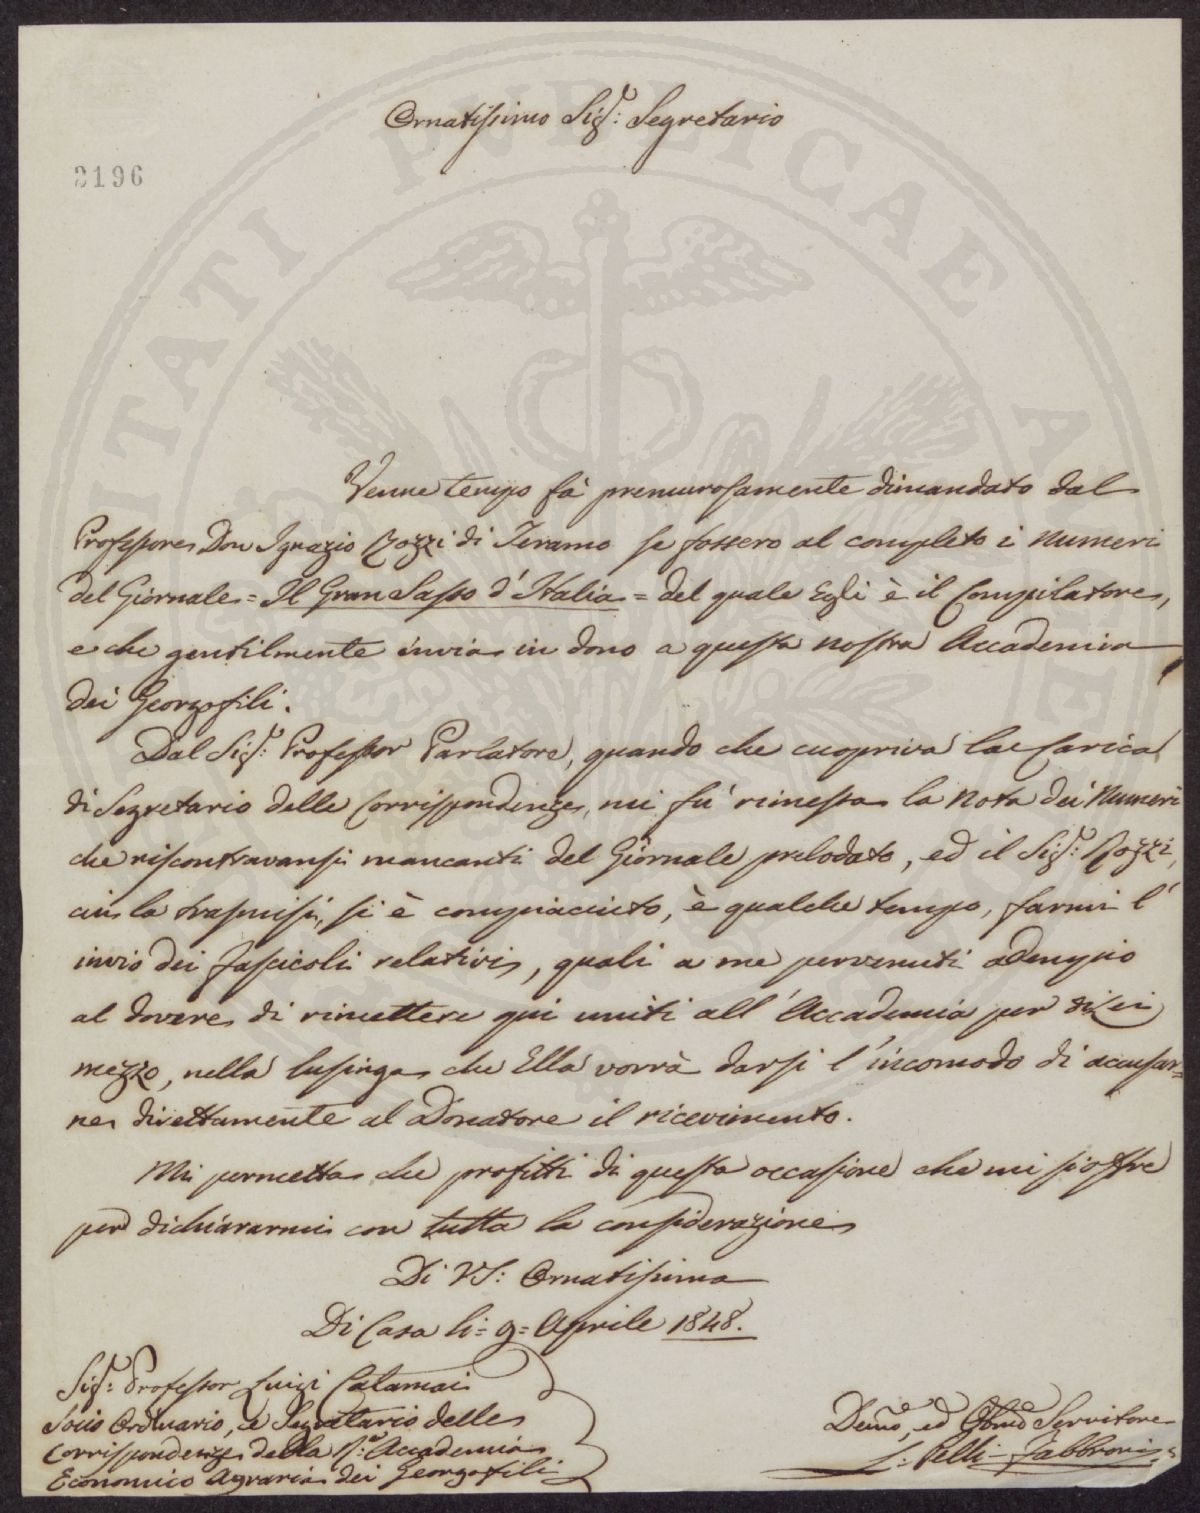 Ornatissimo Sig.r: Segretario
2196
PUBLICAE
Venne tempo fà premurosamente dimandato dal
Professore Don Ignazio Rozzi di Teramo se fossero al completo i Numeri
del Giornale = Il Gran Sasso d'Italia = del quale Egli è il Compilatore,
e che gentilmente invia in dono a questa nostra Accademia
dei Georgofili.
Dal Sig.r: Professor Parlatore, quando che cuopriva la Carica
di Segretario delle Corrispondenze, mi fu' rimessa la Nota dei Numeri
che riscontravansi mancanti del Giornale prelodato, ed il Sig.r: Rozzi,
cui la trasmisi, si è compiaciuto, è qualche tempo, farmi l'
invio dei fascicoli relativi, quali a me pervenuti adempio
al dovere di rimettere qui uniti all'Accademia per di Lei
mezzo, nella lusinga che Ella vorrà darsi l'incomodo di accusar=
ne direttamente al Donatore il ricevimento.
Mi permetta che profitti di questa occasione che mi si offre
per dichiararmi con tutta la considerazione
Di VS: Ornatissima
Di Casa li = 9 = Aprile 1848.
Sig.r: Professor Luigi Calamai
Socio Ordinario, e Segretario delle
Corrispondenze della R.a Accademia
Economico Agraria dei Georgofili
Dev̄mo, ed Obb̄mo Servitore
L: Pelli-Fabbroni